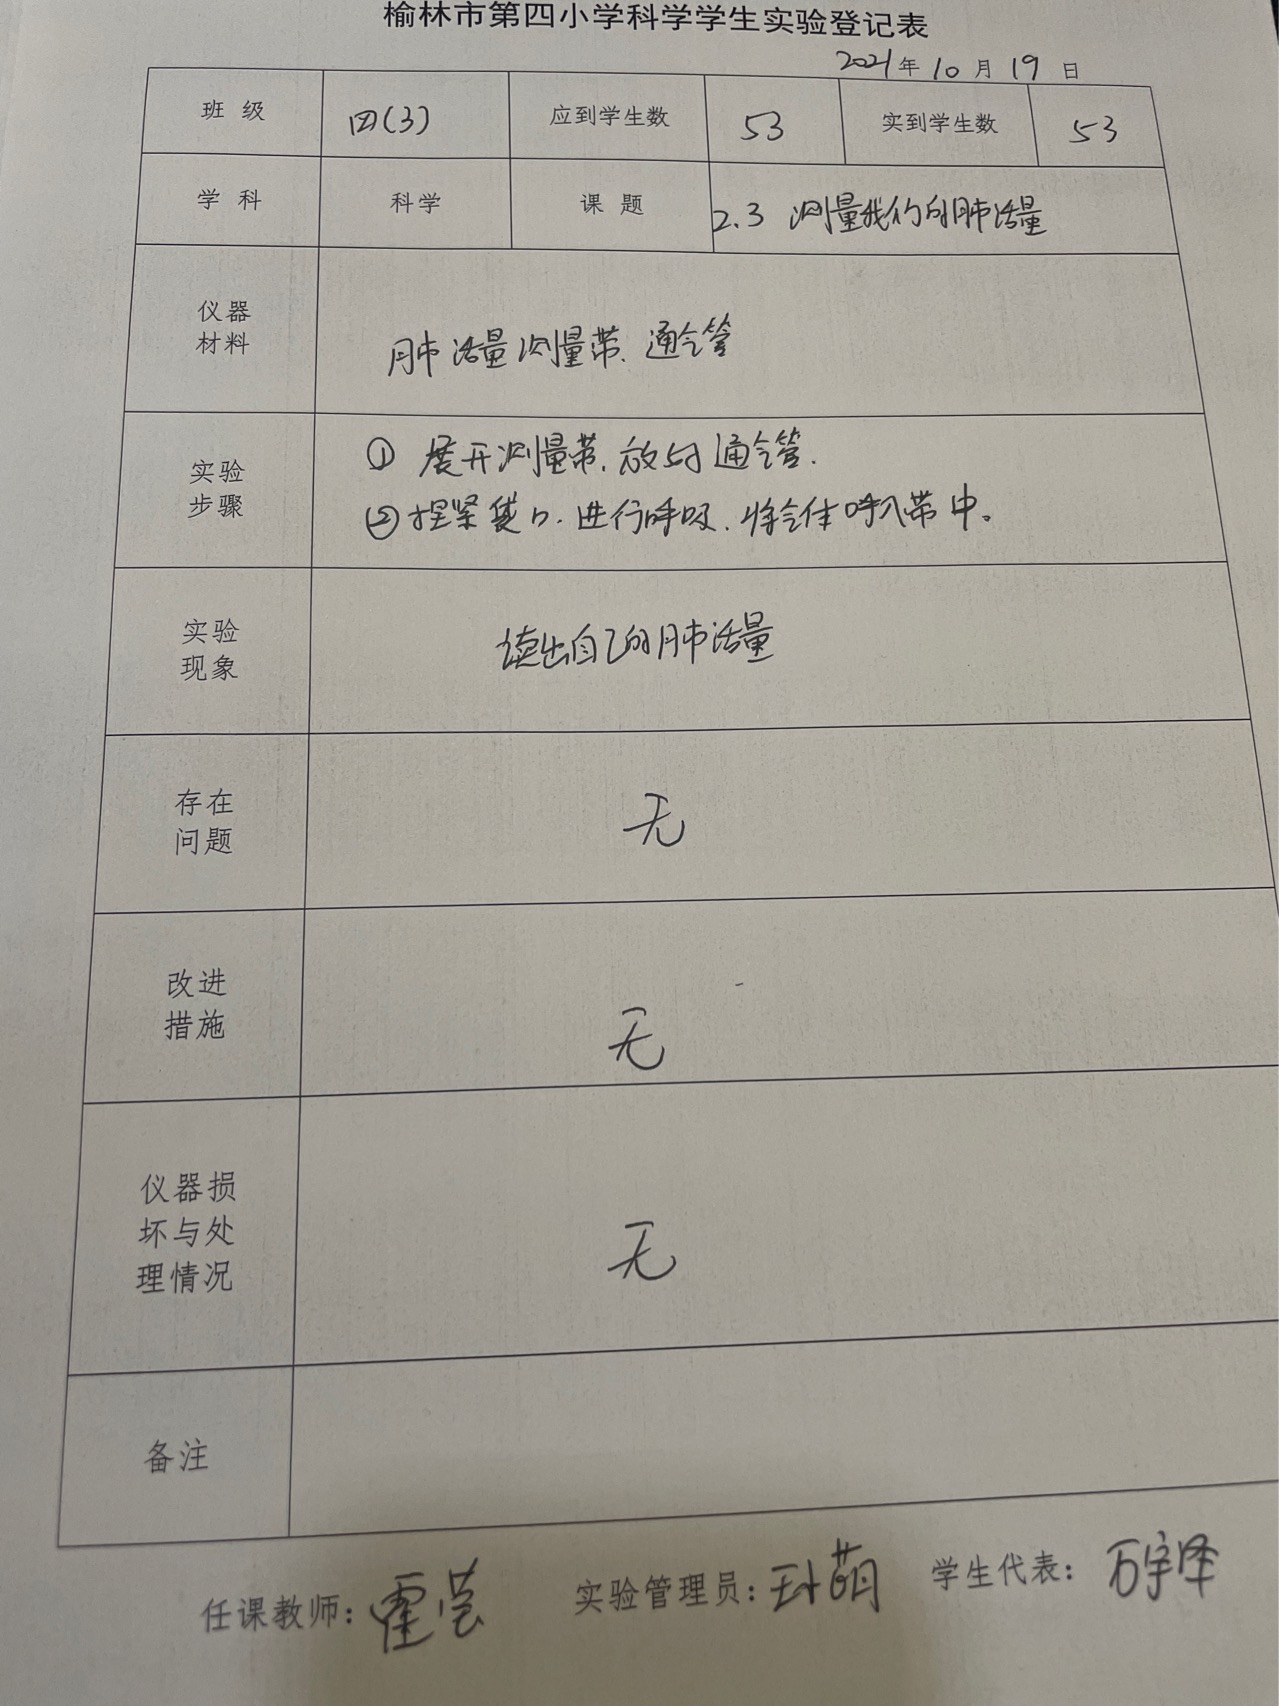 榆林市第四小学科学学生实验登记表
2021年10月19日
班 级 四(3) 应到学生数 53 实到学生数 53
学 科 科学 课 题 2.3 测量我们的肺活量
仪器
材料
肺活量测量带、通气管
实验
步骤
① 展开测量带,放好通气管.
②捏紧袋口,进行呼吸,将气体呼入带中。
实验
现象
读出自己的肺活量
存在
问题
无
改进
措施
无
仪器损
坏与处
理情况
无
备注
任课教师:霍莹 实验管理员: 学生代表:万宇泽